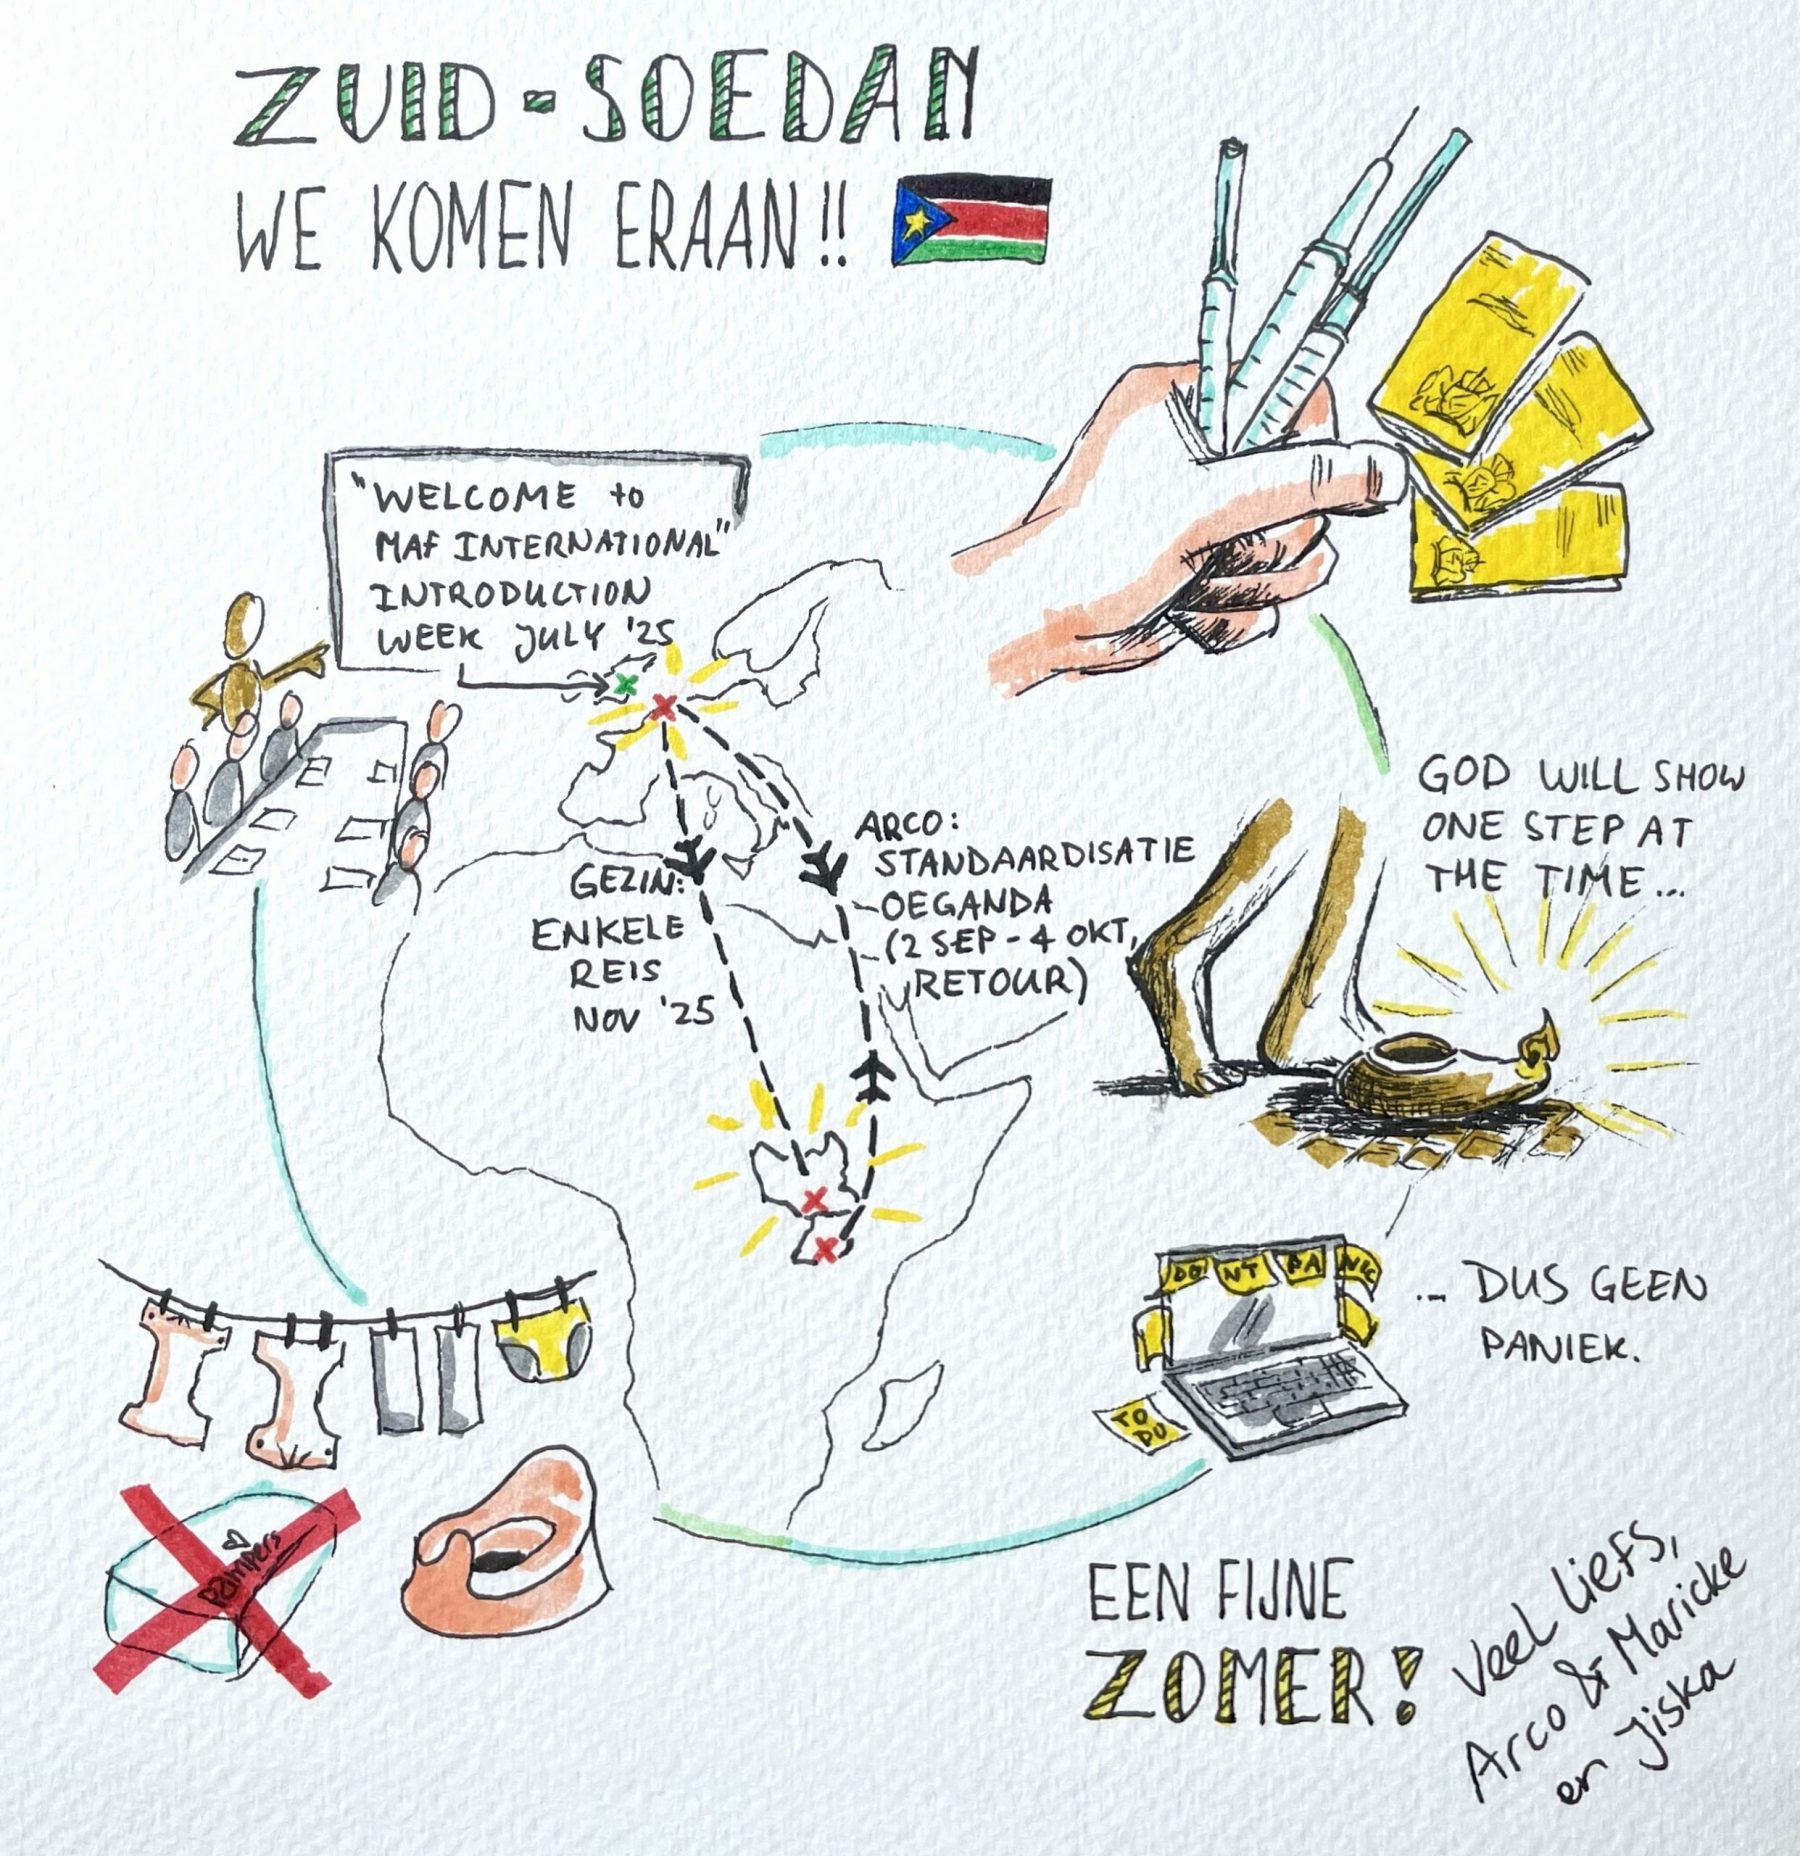 ZUID-SOEDAN
WE KOMEN ERAAN!!
"WELCOME to
MAF INTERNATIONAL"
INTRODUCTION
WEEK JULY '25
GEZIN:
ENKELE
REIS
NOV '25
ARCO:
STANDAARDISATIE
-OEGANDA
-(2 SEP - 4 OKT,
RETOUR)
GOD WILL SHOW
ONE STEP AT
THE TIME...
DO NT PA NIC
TO
DO
... DUS GEEN
PANIEK.
Pampers
EEN FIJNE
ZOMER!
Veel liefs,
Arco & Maricke
en Jiska